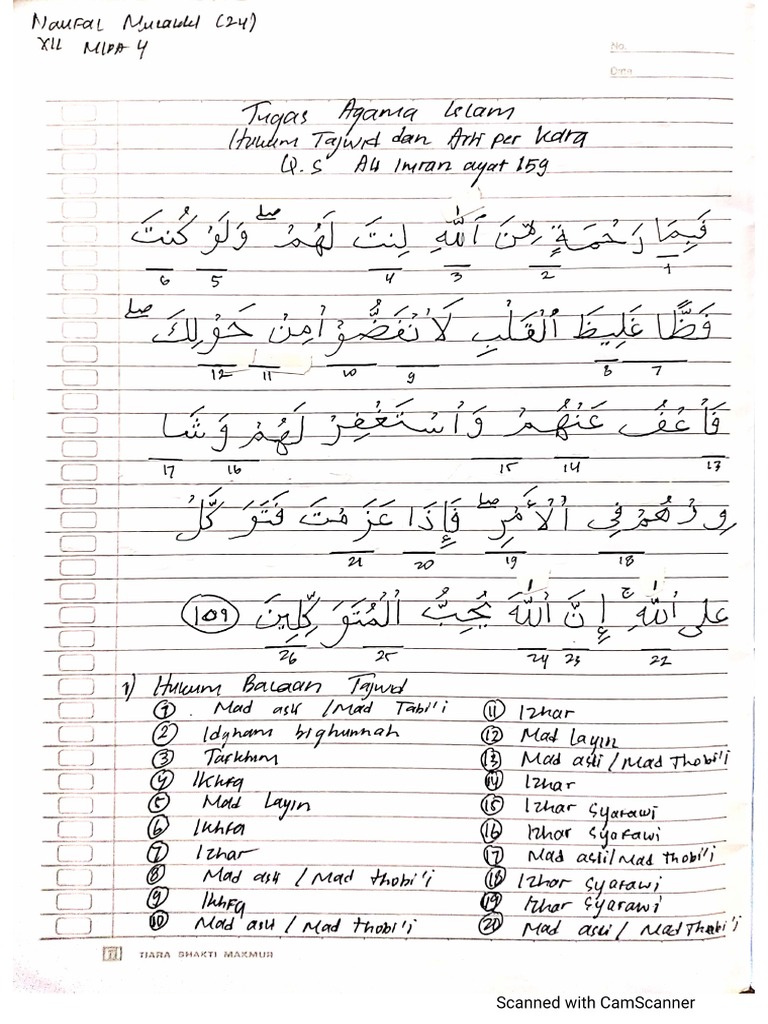 Naufal (24)
XII MIPA 4
No.
Date
Tugas Agama Islam
Hukum Tajwid dan Arti per kata
Q.S Ali Imran ayat 159
فَبِمَا رَحْمَةٍ مِّنَ ٱللَّهِ لِنتَ لَهُمْ ۖ وَلَوْ كُنتَ
1 2 3 4 5 6
فَظًّا غَلِيظَ ٱلْقَلْبِ لَانْفَضُّوْا مِنْ حَوْلِكَ ۖ
7 8 9 10 11 12
فَاعْفُ عَنْهُمْ وَاسْتَغْفِرْ لَهُمْ وَشَا
13 14 15 16 17
وِرْهُمْ فِى الْأَمْرِ ۖ فَإِذَا عَزَمْتَ فَتَوَ كَّلْ
18 19 20 21
على اللَّهِ ۚ إِنَّ اللَّهَ يُحِبُّ الْمُتَوَ كِّلِينَ 159
22 23 24 25 26
1) Hukum Bacaan Tajwid
① Mad asli / Mad Tabi'i
② Idgham bighunnah
③ Tafkhim
④ Ikhfa
⑤ Mad Layin
⑥ Ikhfa
⑦ Izhar
⑧ Mad asli / Mad thobi'i
⑨ Ikhfa
⑩ Mad asli / Mad thobi'i
⑪ Izhar
⑫ Mad layin
⑬ Mad asli / Mad Thobi'i
⑭ Izhar
⑮ Izhar Syafawi
⑯ Izhar syafawi
⑰ Mad asli/Mad thobi'i
⑱ Izhar Syafawi
⑲ Izhar Syafawi
⑳ Mad asli / Mad Thobi'i
TIARA SHAKTI MAKMUR
Scanned with CamScanner